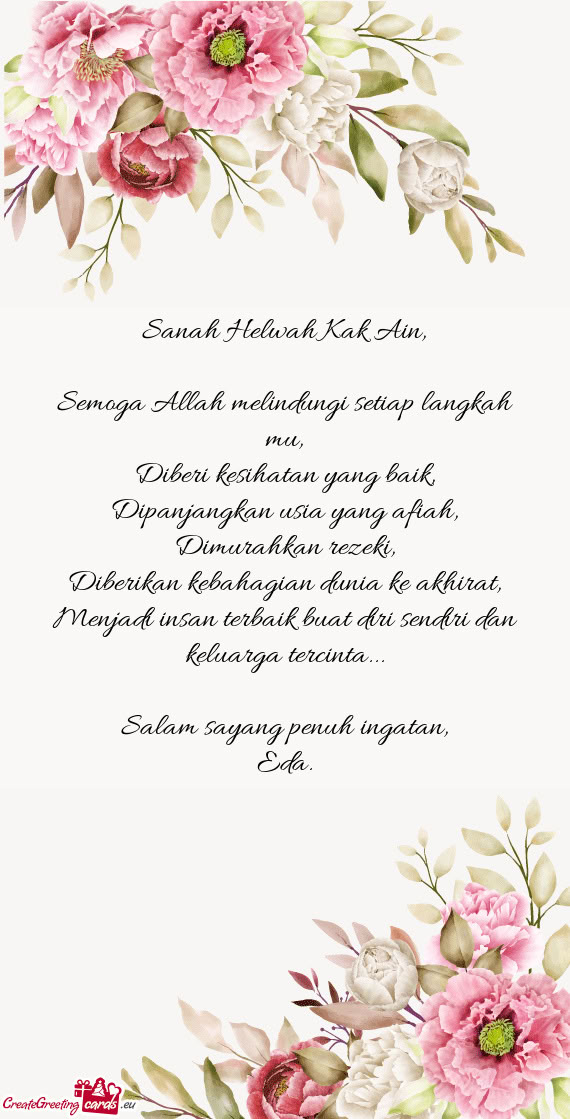 Sanah Helwah Kak Ain,
Semoga Allah melindungi setiap langkah
mu,
Diberi kesihatan yang baik,
Dipanjangkan usia yang afiah,
Dimurahkan rezeki,
Diberikan kebahagian dunia ke akhirat,
Menjadi insan terbaik buat diri sendiri dan
keluarga tercinta...
Salam sayang penuh ingatan,
Eda.
CreateGreeting cards .eu